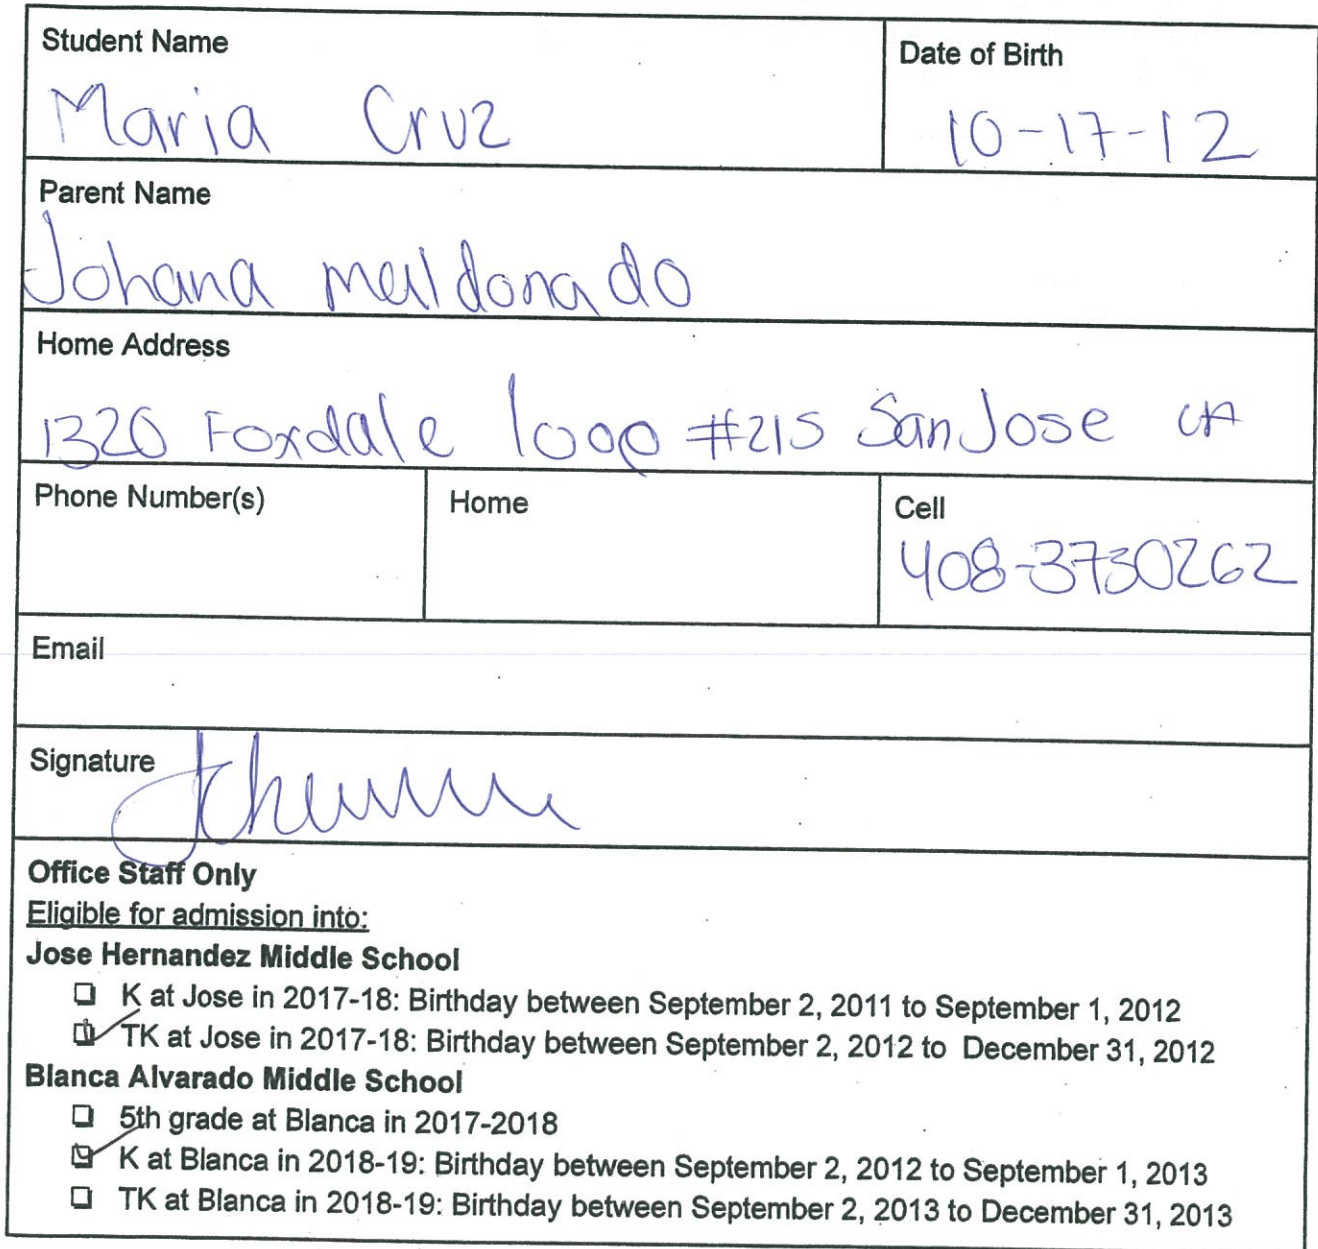 Student Name
Date of Birth
Maria Cruz
10-17-12
Parent Name
Johana maldonado
Home Address
1320 Foxdale loop #215 San Jose CA
Phone Number(s)
Home
Cell
408-3730262
Email
Signature
Office Staff Only
Eligible for admission into:
Jose Hernandez Middle School
K at Jose in 2017-18: Birthday between September 2, 2011 to September 1, 2012
TK at Jose in 2017-18: Birthday between September 2, 2012 to December 31, 2012
Blanca Alvarado Middle School
5th grade at Blanca in 2017-2018
K at Blanca in 2018-19: Birthday between September 2, 2012 to September 1, 2013
TK at Blanca in 2018-19: Birthday between September 2, 2013 to December 31, 2013